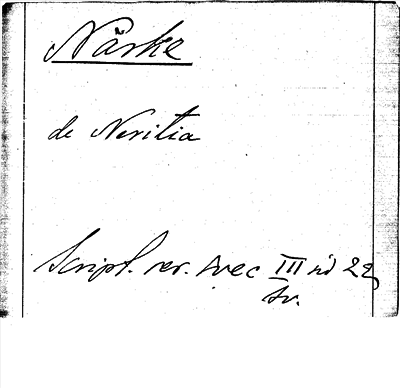 Närke
de Nericia
Script. rer. svec III sid 22
sv.